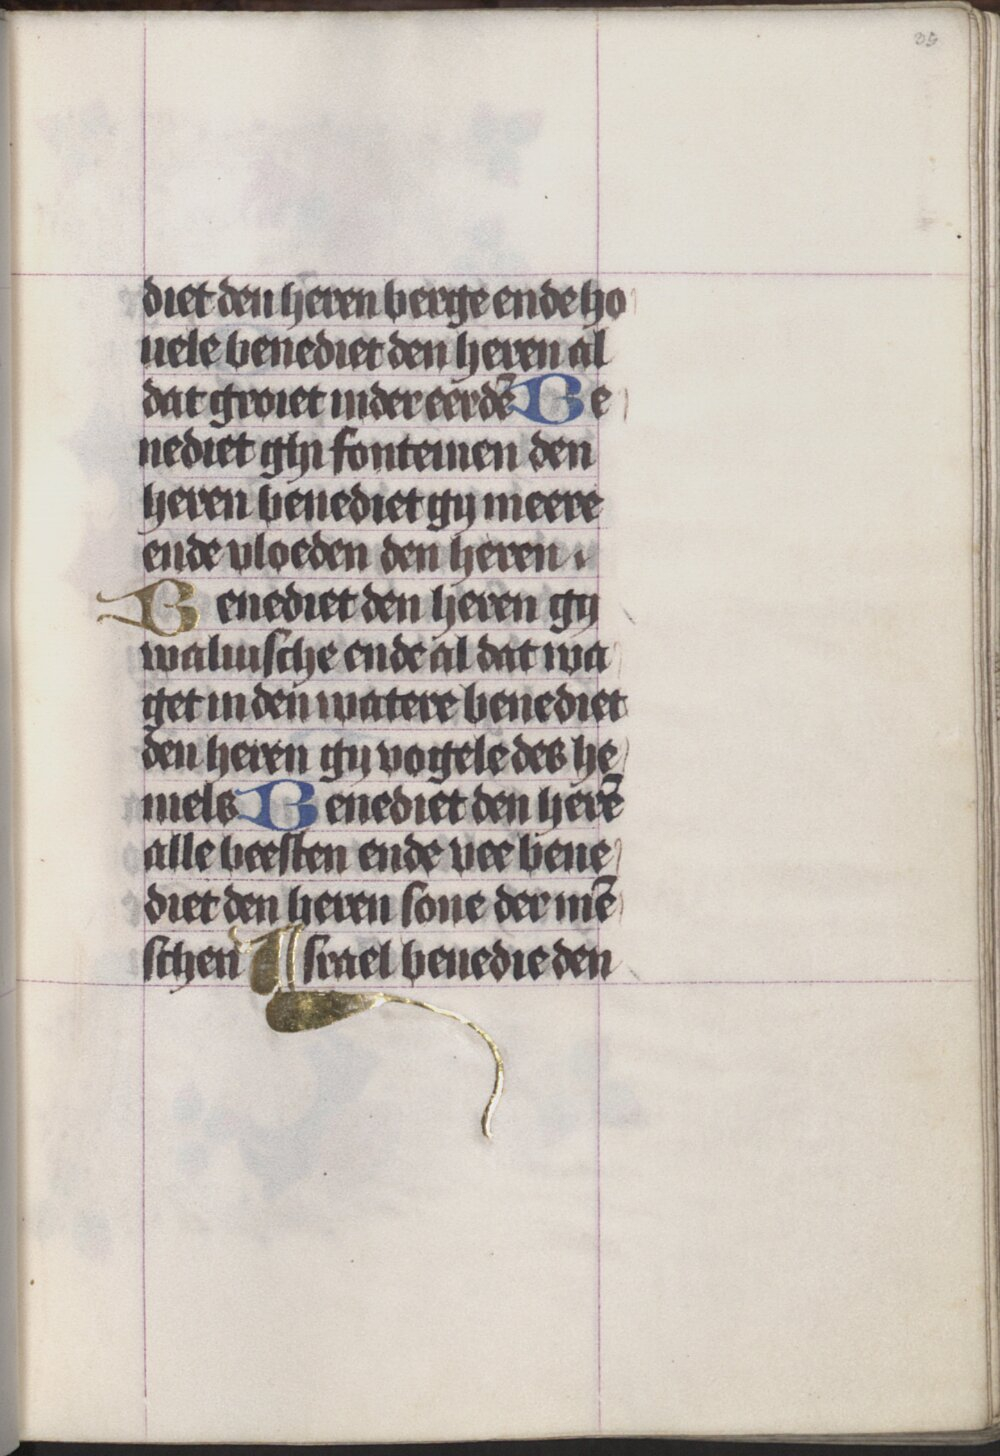 35
diet den heren berge ende ho
uele benediet den heren al
dat groiet inder eerdē Be
nediet ghi fonteinen den
heren benediet gy meere
ende vloeden den heren .
Benediet den heren gy
waluische ende al dat wa
get in den watere benediet
den heren gy vogele des he
mels Benediet den herē
alle beesten ende vee bene
diet den heren sone der mē
schen Israel benedie den